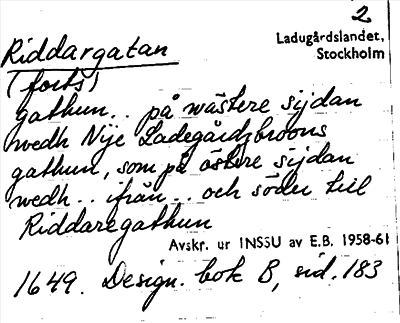 2
Ladugårdslandet,
Stockholm
Riddargatan
(forts)
gathun.. på wästere sijdan
wedh Nije Ladegårdzbroons
gathun, som på östere sijdan
wedh.. ifrån.. och söder till
Riddaregathun
Avskr. ur INSSU av E.B. 1958-61
1649. Design. bok B, sid. 183